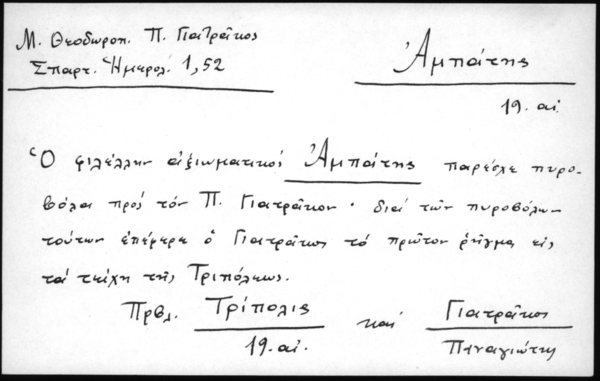 Μ. Θεοδωροπ. Π. Γιατρᾶκος
Σπαρτ. Ἡμερολ. 1, 52
Ἀμπάτης
19. αἰ.
Ὁ φιλέλλην ἀξιωματικός Ἀμπάτης παρέσχε πυρο-
βόλα πρός τόν Π. Γιατρᾶκον · διά τῶν πυροβόλων
τούτων ἐπέφερε ὁ Γιατρᾶκος τό πρῶτον ρῆγμα εἰς
τά τείχη τῆς Τριπόλεως.
Πρβλ. Τρίπολις καί Γιατρᾶκος
19. αἰ. Παναγιώτης